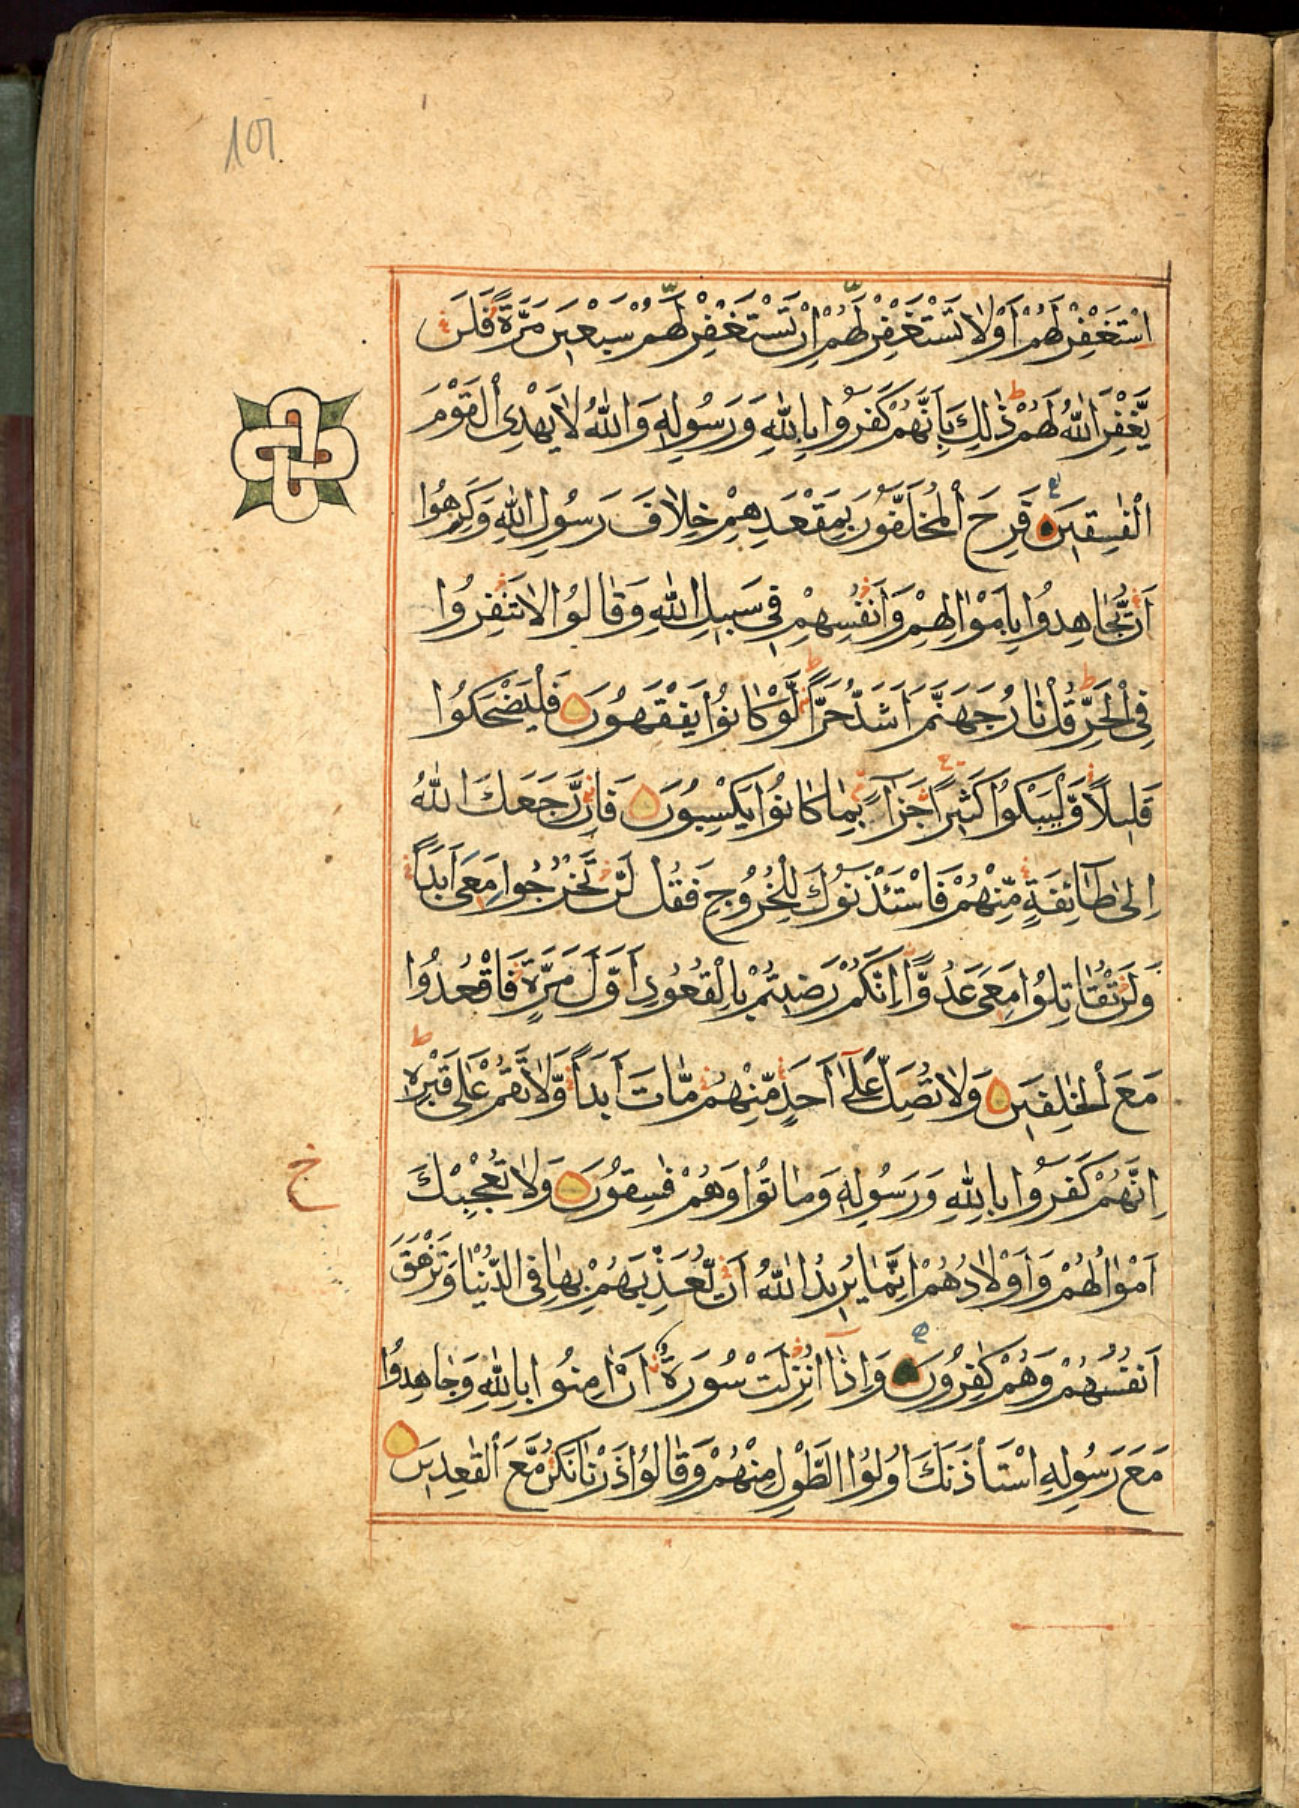 101
اِسْتَغْفِرْ لَهُمْ اَوْ لَا تَسْتَغْفِرْ لَهُمْ اِنْ تَسْتَغْفِرْ لَهُمْ سَبْعِينَ مَرَّةً فَلَنْ
يَّغْفِرَ اللّٰهُ لَهُمْ ط ذٰلِكَ بِاَنَّهُمْ كَفَرُوا بِاللّٰهِ وَرَسُولِهٖ وَاللّٰهُ لَا يَهْدِى الْقَوْمَ
الْفٰسِقِينَ فَرِحَ الْمُخَلَّفُونَ بِمَقْعَدِهِمْ خِلَافَ رَسُولِ اللّٰهِ وَكَرِهُوا
اَنْ يُّجَاهِدُوا بِاَمْوَالِهِمْ وَاَنْفُسِهِمْ فِى سَبِيلِ اللّٰهِ وَقَالُوا لَا تَنْفِرُوا
فِى الْحَرِّ ط قُلْ نَارُ جَهَنَّمَ اَشَدُّ حَرًّا ط لَّوْ كَانُوا يَفْقَهُونَ فَلْيَضْحَكُوا
قَلِيلًا وَّلْيَبْكُوا كَثِيرًا جَزَآءً بِمَا كَانُوا يَكْسِبُونَ فَاِنْ رَّجَعَكَ اللّٰهُ
اِلٰى طَآئِفَةٍ مِّنْهُمْ فَاسْتَئْذَنُوكَ لِلْخُرُوجِ فَقُلْ لَّنْ تَخْرُجُوا مَعِىَ اَبَدًا
وَلَنْ تُقَاتِلُوا مَعِىَ عَدُوًّا اِنَّكُمْ رَضِيتُمْ بِالْقُعُودِ اَوَّلَ مَرَّةٍ فَاقْعُدُوا
مَعَ الْخٰلِفِينَ وَلَا تُصَلِّ عَلٰٓى اَحَدٍ مِّنْهُمْ مَّاتَ اَبَدًا وَّلَا تَقُمْ عَلٰى قَبْرِهٖ ط
اِنَّهُمْ كَفَرُوا بِاللّٰهِ وَرَسُولِهٖ وَمَاتُوا وَهُمْ فٰسِقُونَ وَلَا تُعْجِبْكَ
ج
اَمْوَالُهُمْ وَاَوْلَادُهُمْ اِنَّمَا يُرِيدُ اللّٰهُ اَنْ يُّعَذِّبَهُمْ بِهَا فِى الدُّنْيَا وَتَزْهَقَ
اَنْفُسُهُمْ وَهُمْ كٰفِرُونَ وَاِذَآ اُنْزِلَتْ سُورَةٌ اَنْ اٰمِنُوا بِاللّٰهِ وَجَاهِدُوا
مَعَ رَسُولِهِ اسْتَأْذَنَكَ اُولُوا الطَّوْلِ مِنْهُمْ وَقَالُوا ذَرْنَا نَكُنْ مَّعَ الْقٰعِدِينَ